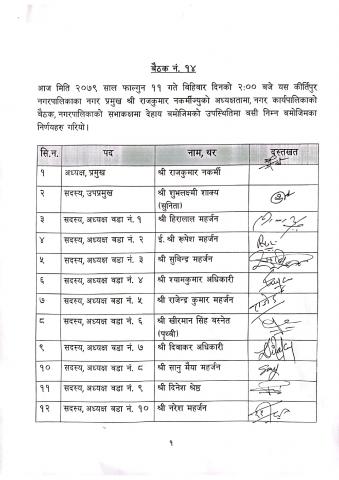 बैठक नं. १४
आज मिति २०७९ साल फाल्गुन ११ गते बिहिवार दिनको २:०० बजे यस कीर्तिपुर
नगरपालिकाका नगर प्रमुख श्री राजकुमार नकर्मीज्युको अध्यक्षतामा, नगर कार्यपालिकाको
बैठक, नगरपालिकाको सभाकक्षमा देहाय बमोजिमको उपस्थितिमा बसी निम्न बमोजिमका
निर्णयहरु गरियो।
सि.न. पद नाम, थर दस्तखत
१ अध्यक्ष, प्रमुख श्री राजकुमार नकर्मी
२ सदस्य, उपप्रमुख श्री शुभलक्ष्मी शाक्य
(सुनिता)
३ सदस्य, अध्यक्ष वडा नं. १ श्री हिरालाल महर्जन
४ सदस्य, अध्यक्ष वडा नं. २ ई. श्री रूपेश महर्जन
५ सदस्य, अध्यक्ष वडा नं. ३ श्री सुविन्द्र महर्जन
६ सदस्य, अध्यक्ष वडा नं. ४ श्री श्यामकुमार अधिकारी
७ सदस्य, अध्यक्ष वडा नं. ५ श्री राजेन्द्र कुमार महर्जन
८ सदस्य, अध्यक्ष वडा नं. ६ श्री खीरमान सिंह बस्नेत
(पृथ्वी)
९ सदस्य, अध्यक्ष वडा नं. ७ श्री दिवाकर अधिकारी
१० सदस्य, अध्यक्ष वडा नं. ८ श्री सानु मैया महर्जन
११ सदस्य, अध्यक्ष वडा नं. ९ श्री दिनेश श्रेष्ठ
१२ सदस्य, अध्यक्ष वडा नं. १० श्री नरेश महर्जन
१